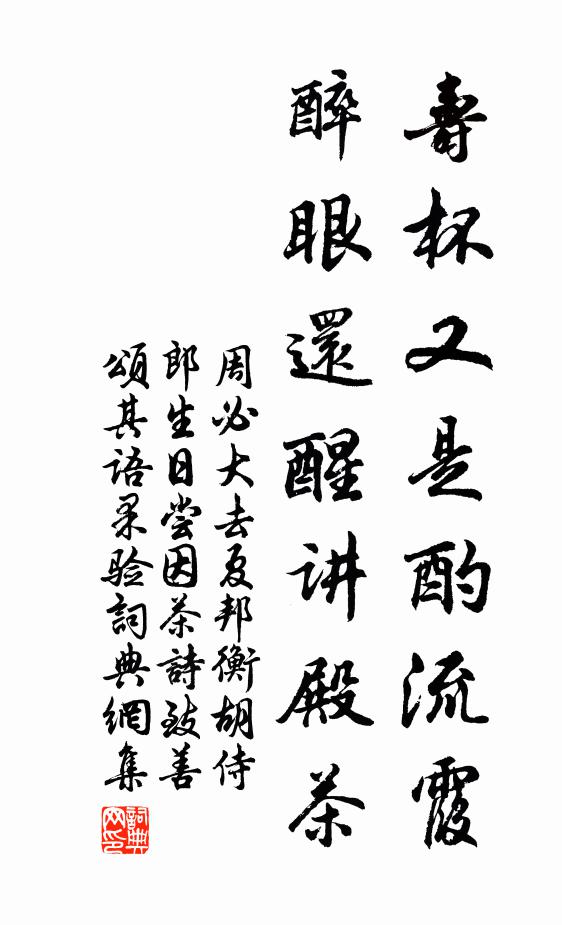 壽杯又是酌流霞
醉眼還醒讲殿茶
周必大去夏邦衡胡侍
郎生日尝因茶詩致善
頌其语果验詞典網集
詞典网印